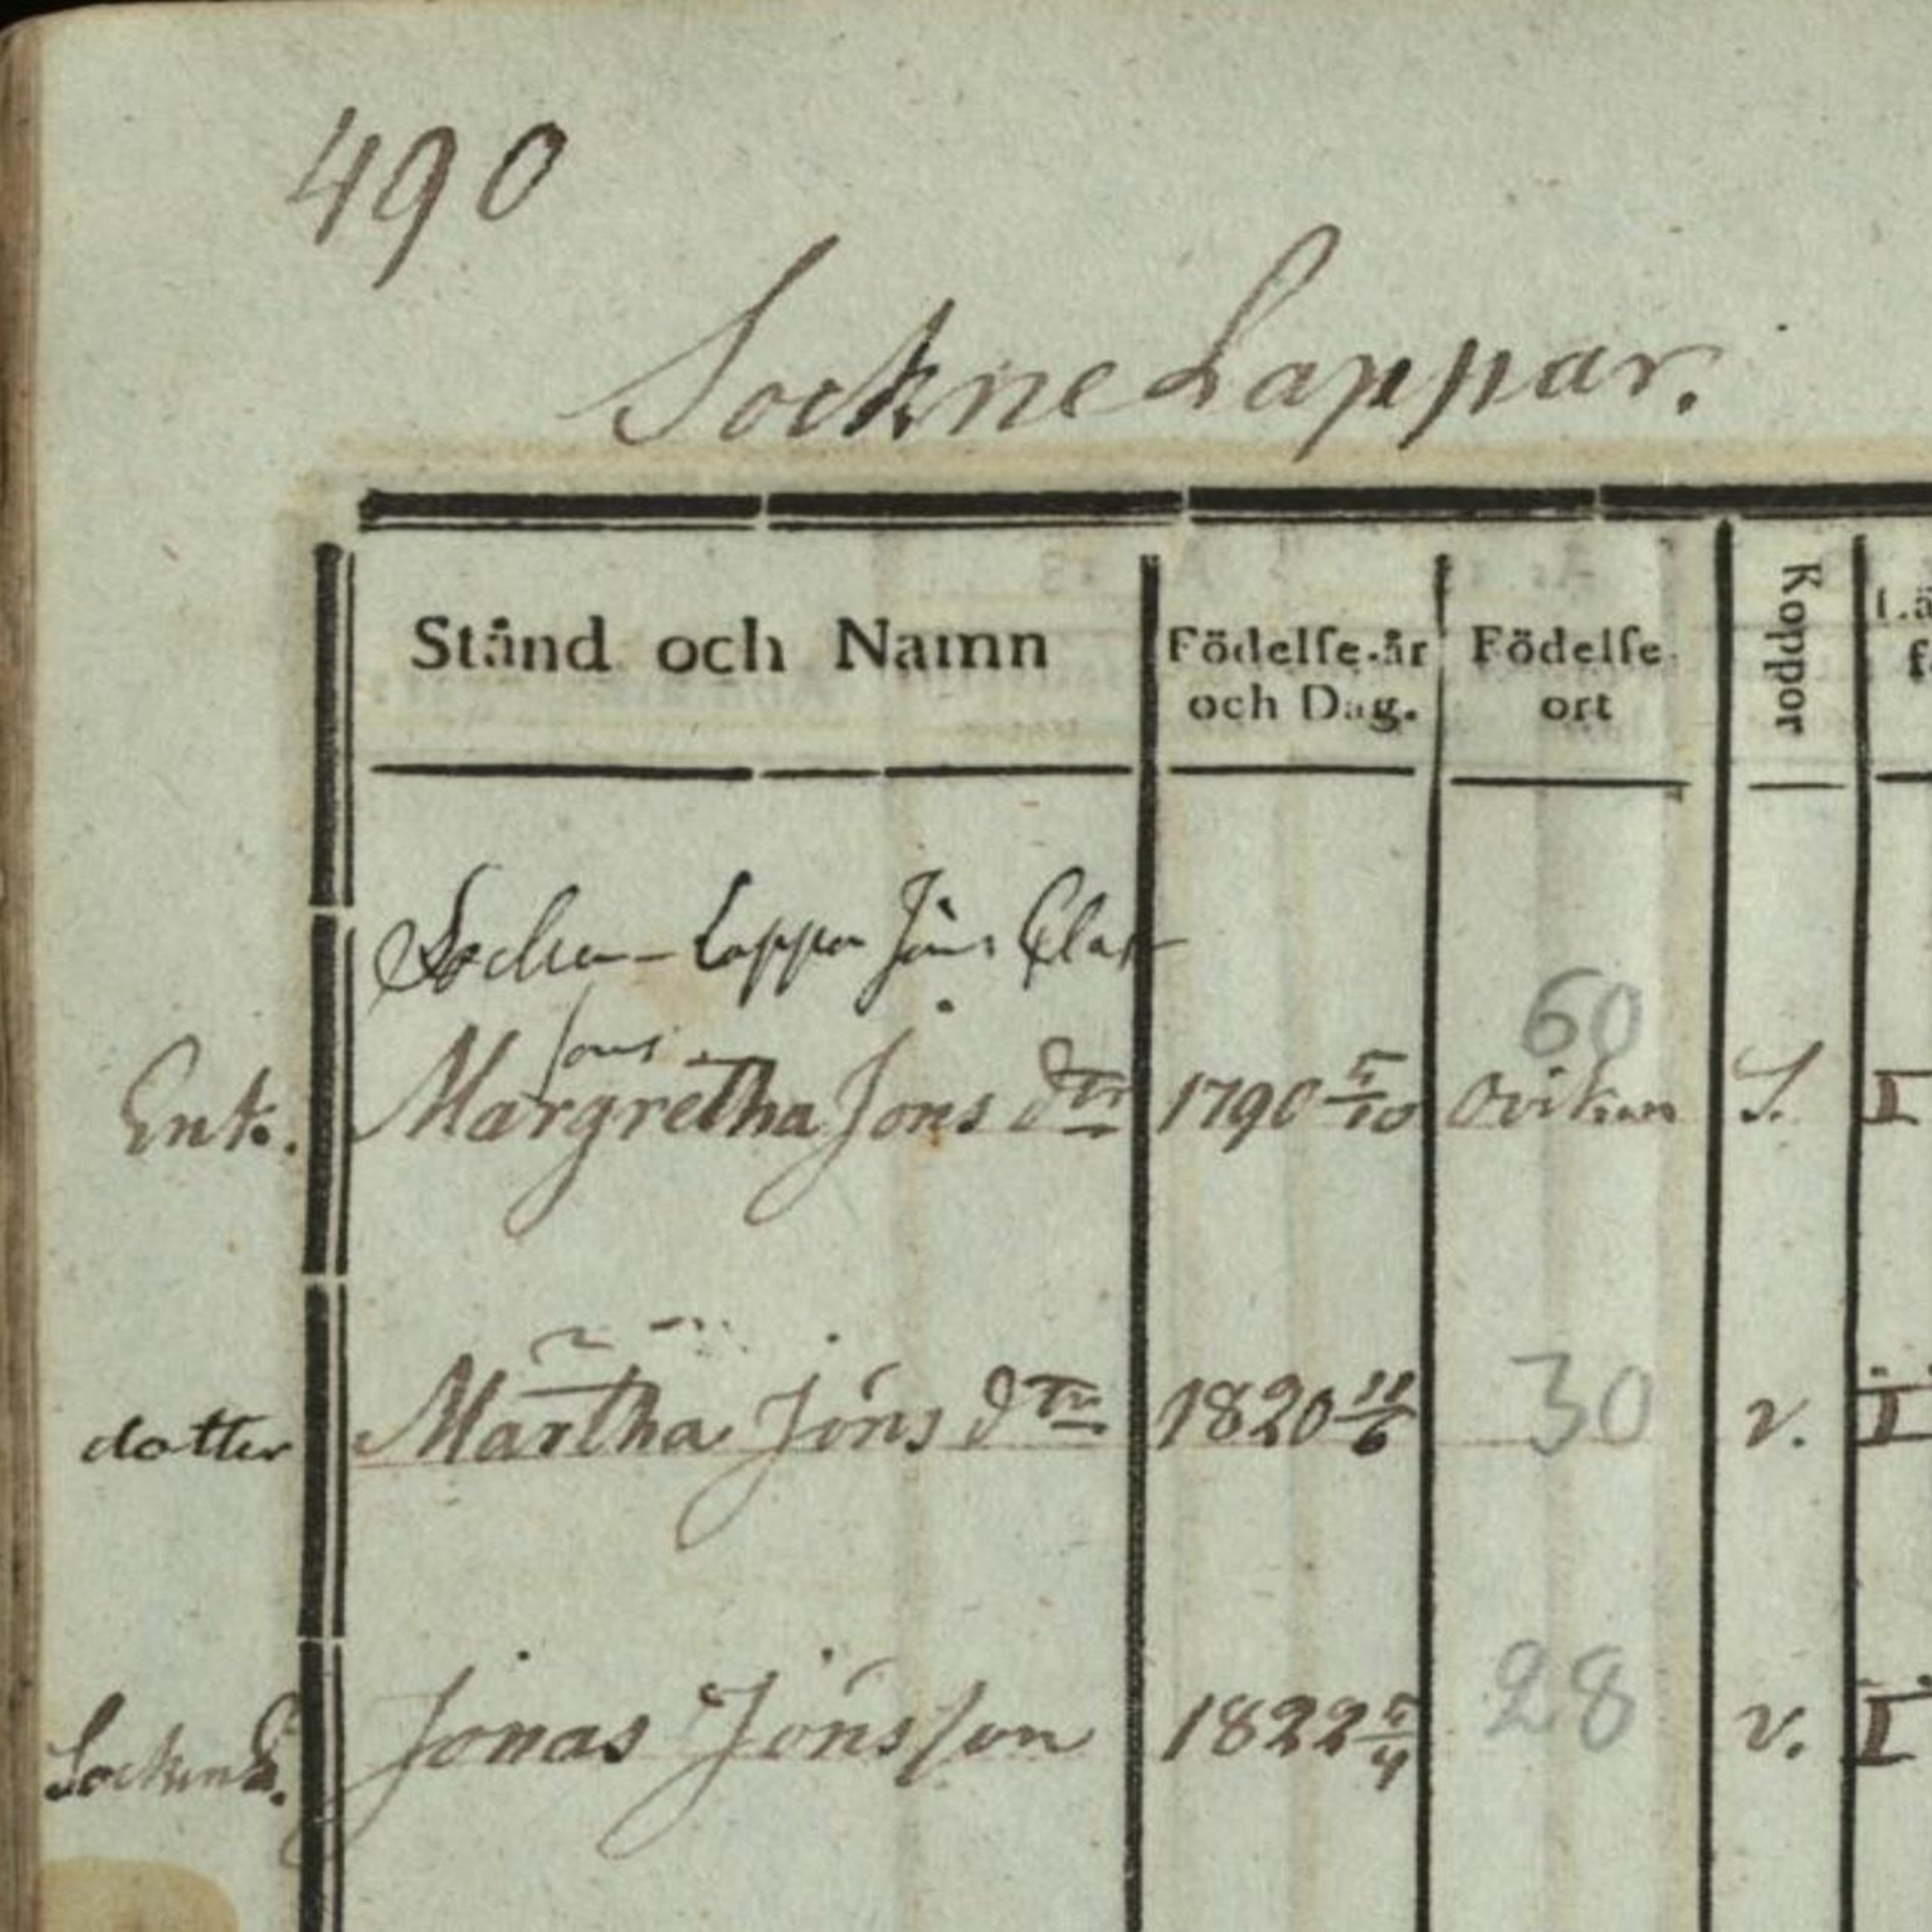 490
Sockne Lappar.
Stånd och Namn
Födelſe-år och Dag.
Födelſe ort
Koppor
Socken-Lappen Jöns Clas
60
Enk. Margretha Jons dtr 1790 5/10 Oviken S. I
dotter Martha Jöns dtr 1820 11/6 30 v. I
Socken L. Jonas Jönsson 1822 5/4 28 v. I